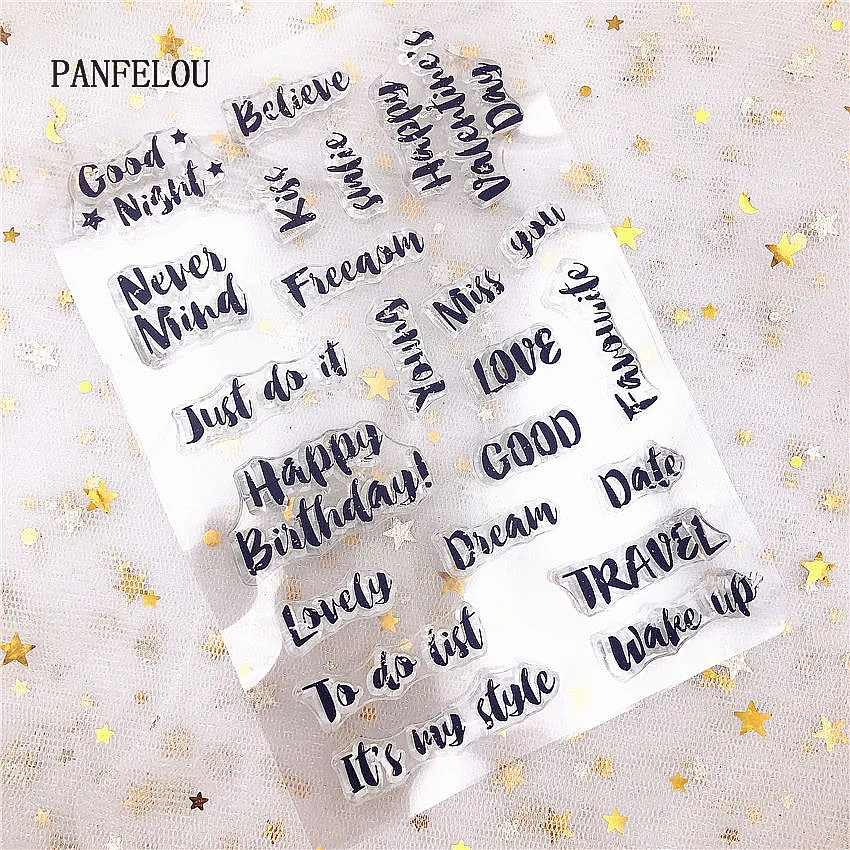 PANFELOU
Believe
Happy
Valentine's
Day
Good
Night
Kiss
Smile
you
Never
Mind
Freedom
Miss
Young
Favourite
Just do it
LOVE
Happy
Birthday!
GOOD
Date
Dream
TRAVEL
Lovely
Wake up
To do list
It's my style